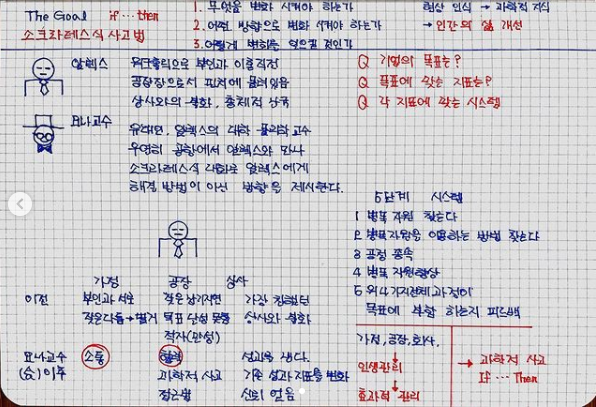 The Goal if...then
소크라테스식 사고법
1. 무엇을 변화 시켜야 하는가
2. 어떤 방향으로 변화 시켜야 하는가
3. 어떻게 변화를 일으킬 것인가
현상 인식 → 과학적 지식
→ 인간의 삶 개선
알렉스
워크홀릭으로 부인과 이혼직전
공장장으로서 폐쇄에 몰려있음
상사와의 불화, 총체적 난국
Q 기업의 목표는?
Q 목표에 맞는 지표는?
Q 각 지표에 맞는 시스템
요나교수
유대인, 알렉스의 대학 물리학 교수
우연히 공항에서 알렉스와 만나
소크라테스식 대화로 알렉스에게
해결 방법이 아닌 방향을 제시한다.
5단계 시스템
1 병목 자원 찾는다
2 병목자원을 이용하는 방법 찾는다
3 공정 종속
4 병목 자원향상
5 위 4가지전제과정이
목표에 부합 하는지 피드백
가정 공장 상사
이전 부인과 서로 잦은 납기지연 가장 친했던
잦은다툼→별거 목표 달성 못함 상사와 불화
적자(만성)
요나교수 소통 협력 성과를 낸다.
(슝)이후 과학적 사고 기존 성과 지표를 변화
접근법 신뢰 얻음
가정, 공장, 회사.
인생관리
효과적 관리
→ 과학적 사고
If ... Then